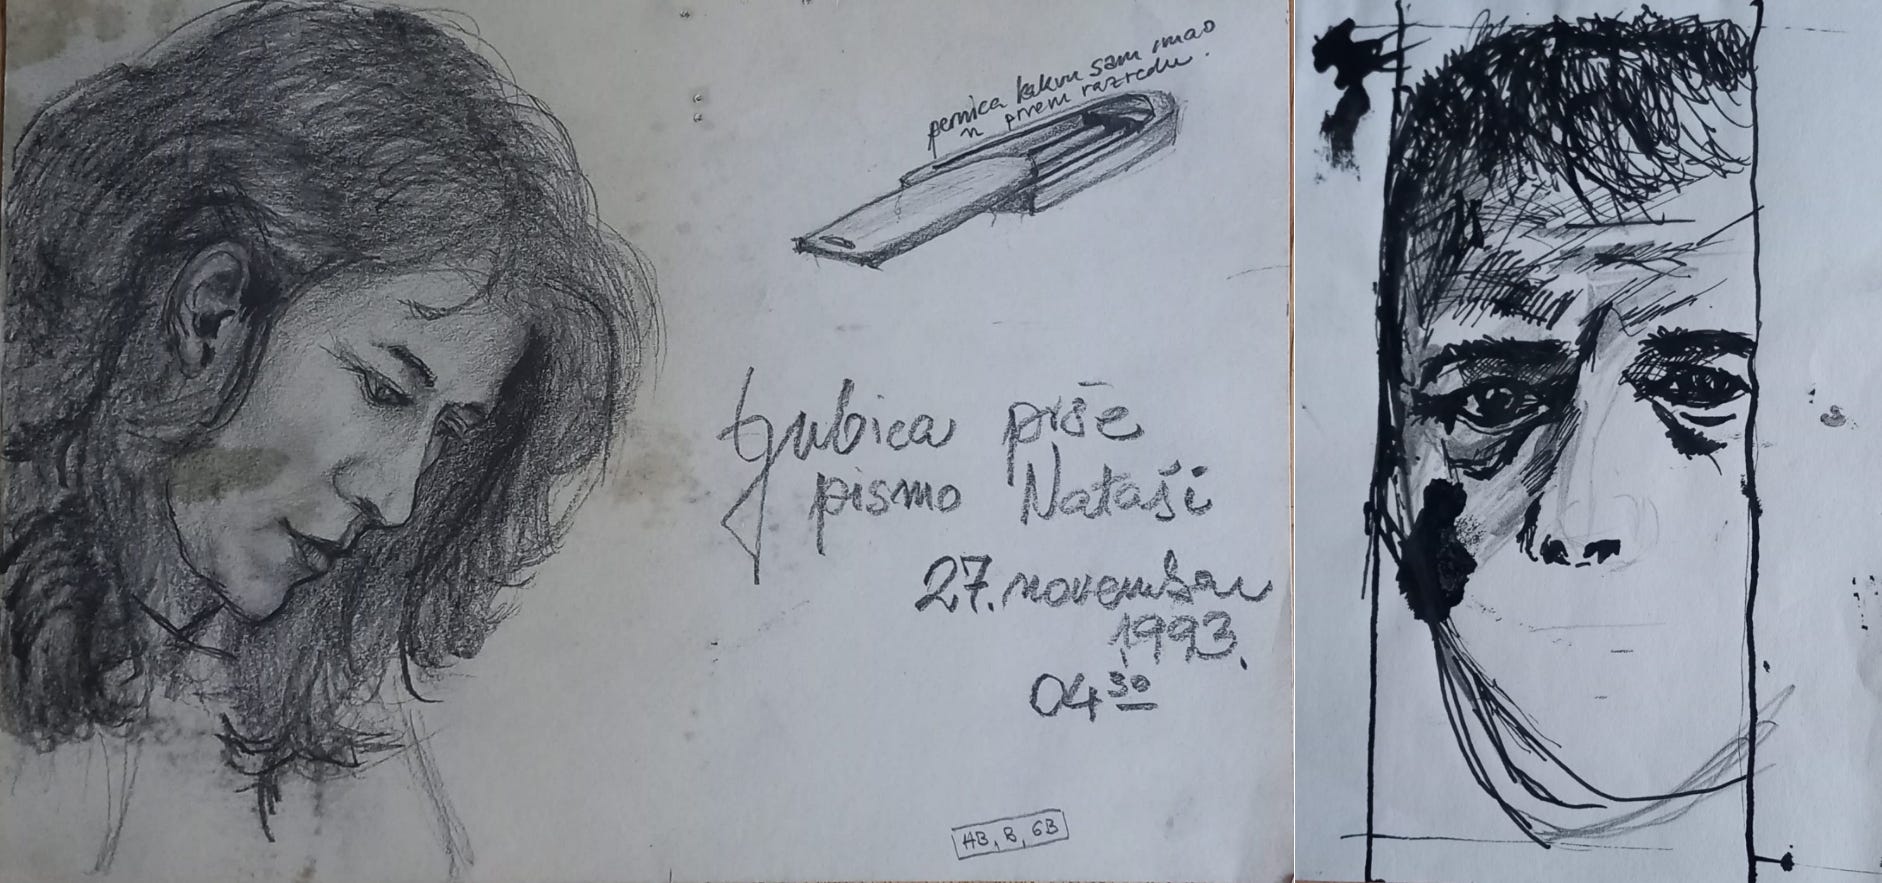 pernica kakvu sam imao
u prvem razredu.
Ljubica piše
pismo Nataši
27. novembar
1993.
04 30
HB, B, 6B